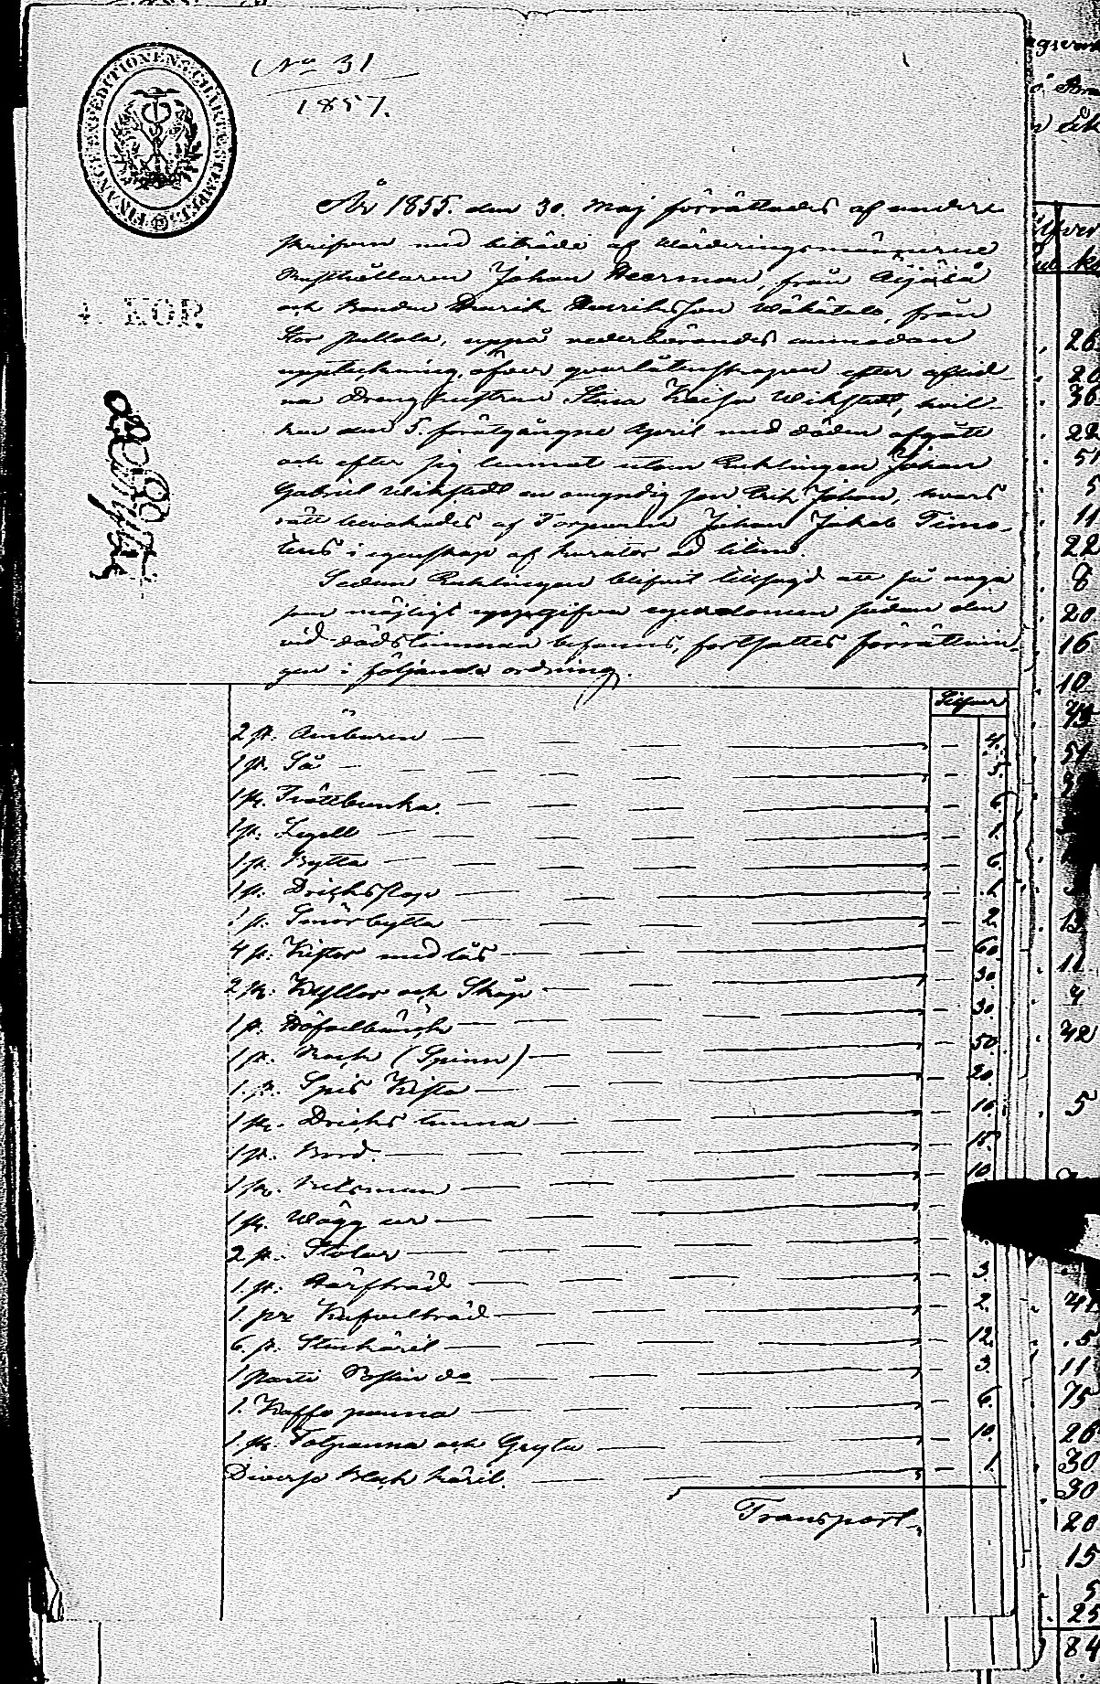 No 31
1857.
FINANCE EXPEDITIONENS CHARTÆ STEMPEL
4. KOP.
År 1855. den 30. Maj förrättades af under-
skrifvne med biträde af Wärderingsmännerne
Rusthållaren Johan Heerman, från
och Bonden Henrik Henriksson från
Stor Pullola, uppå vederbörandes anmodan
uppteckning öfver qvarlåtenskapen efter aflid-
na Drenghustrun Stina Kaisa Wikstedt, hvil-
ken den 5. förutgångne April med döden afgått
och efter sig lemnat utom Enklingen Johan
Gabriel Wikstedt en omyndig son Erik Johan, hvars
rätt bevakades af Torparen Johan Jakob Timo-
teus i egenskap af kurator ad litem.
Sedan Enklingen blifvit tillsagd att så noga
som möjligt uppgifva egendomen sådan den
vid dödstimman befanns, fortsattes förrättnin-
gen i följande ordning.
Silfver
2 st. Ämbaren — 4.
1 st. Så — 5.
1 st. Tvättbunka. — 6
1 st. Legell — 1.
1 st. Bytta — 6.
1 st. Dricksstop — 1.
1 st. Smörbytta — 2
4 st. Kistor med lås — 60.
2 st. Hyllor och Skåp — 30.
1 st. — 30.
1 st. Rock (Spinn) — 50.
1 st. Spis Kista — 20.
1 st. Dricks tunna — 10.
1 st. Bord. — 15.
1 st. Betsman — 10.
1 st. Wägg ur —
2 st. Stolar —
1 st. — 3.
1 pr — 2.
6 st. Stenkäril — 12.
1 parti Postlin do — 3.
1. Kaffe panna — 6.
1 st. och Gryta — 10.
Diverse Bleck käril. — 1.
Transport.
26
20
36
22
51
5
11
22
8
20.
16
10
51
13
11
4
42
5
41
5
11
75
26
30
30
20
15
5
25
84